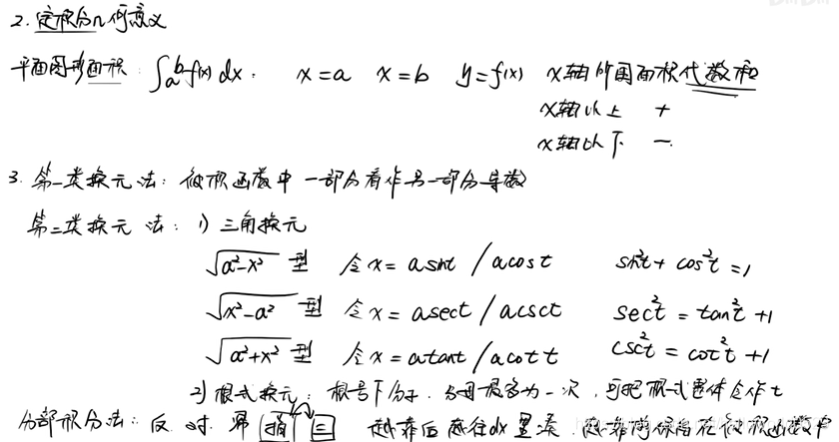 2. 定积分几何意义
平面图形面积: ∫ₐᵇ f(x) dx. x=a x=b y=f(x) x轴所围面积代数和
x轴以上 +
x轴以下 -
3. 第一类换元法: 被积函数中一部分看作另一部分导数
第二类换元法: 1) 三角换元
√(a²-x²) 型 令x=asint/acost sin²t+cos²t=1
√(x²-a²) 型 令x=asect/acsct sec²t=tan²t+1
√(a²+x²) 型 令x=atant/acott csc²t=cot²t+1
2) 根式换元: 根号下分子、分母最多为一次, 可把根式整体令作t
分部积分法: 反 对 幂 指 三 越靠后越往dx里凑 越靠前保留在被积函数中